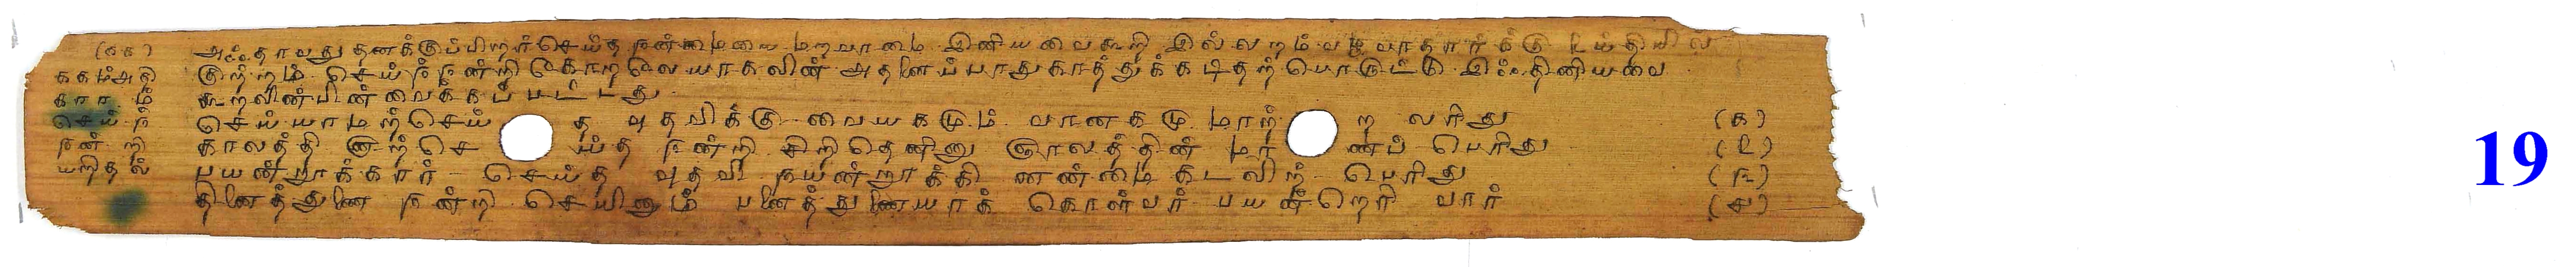 (கக) அஃதாவது தனக்குப்பிறர்செய்த நன்மையை மறவாமை இனியவைகூறி இல்லறம் வழுவாதார்க்கு உய்தியில்
ககம்அதி குற்றம் செய்ந்நன்றி கோறலே யாகலின் அதனைப்பாதுகாத்துக்கடிதற் பொருட்டு இஃதினியவை
காரம் கூறலின்பின் வைக்கப்பட்டது
செய்ந் செய்யாமற்செய் த வுதவிக்கு வையகமும் வானகமு மாற்ற லரிது (க)
நன்றி காலத்தி னாற்செ ய்த நன்றி சிறிதெனினு ஞாலத்தின் மா ணப் பெரிது (உ)
யறிதல் பயன்றூக்கார் செய்த வுதவி நயன்றூக்கி னன்மை கடலிற் பெரிது (ங)
தினைத்துணை நன்றி செயினும் பனைத்துணையாக் கொள்வர் பயன்றெரி வார் (ச)
19